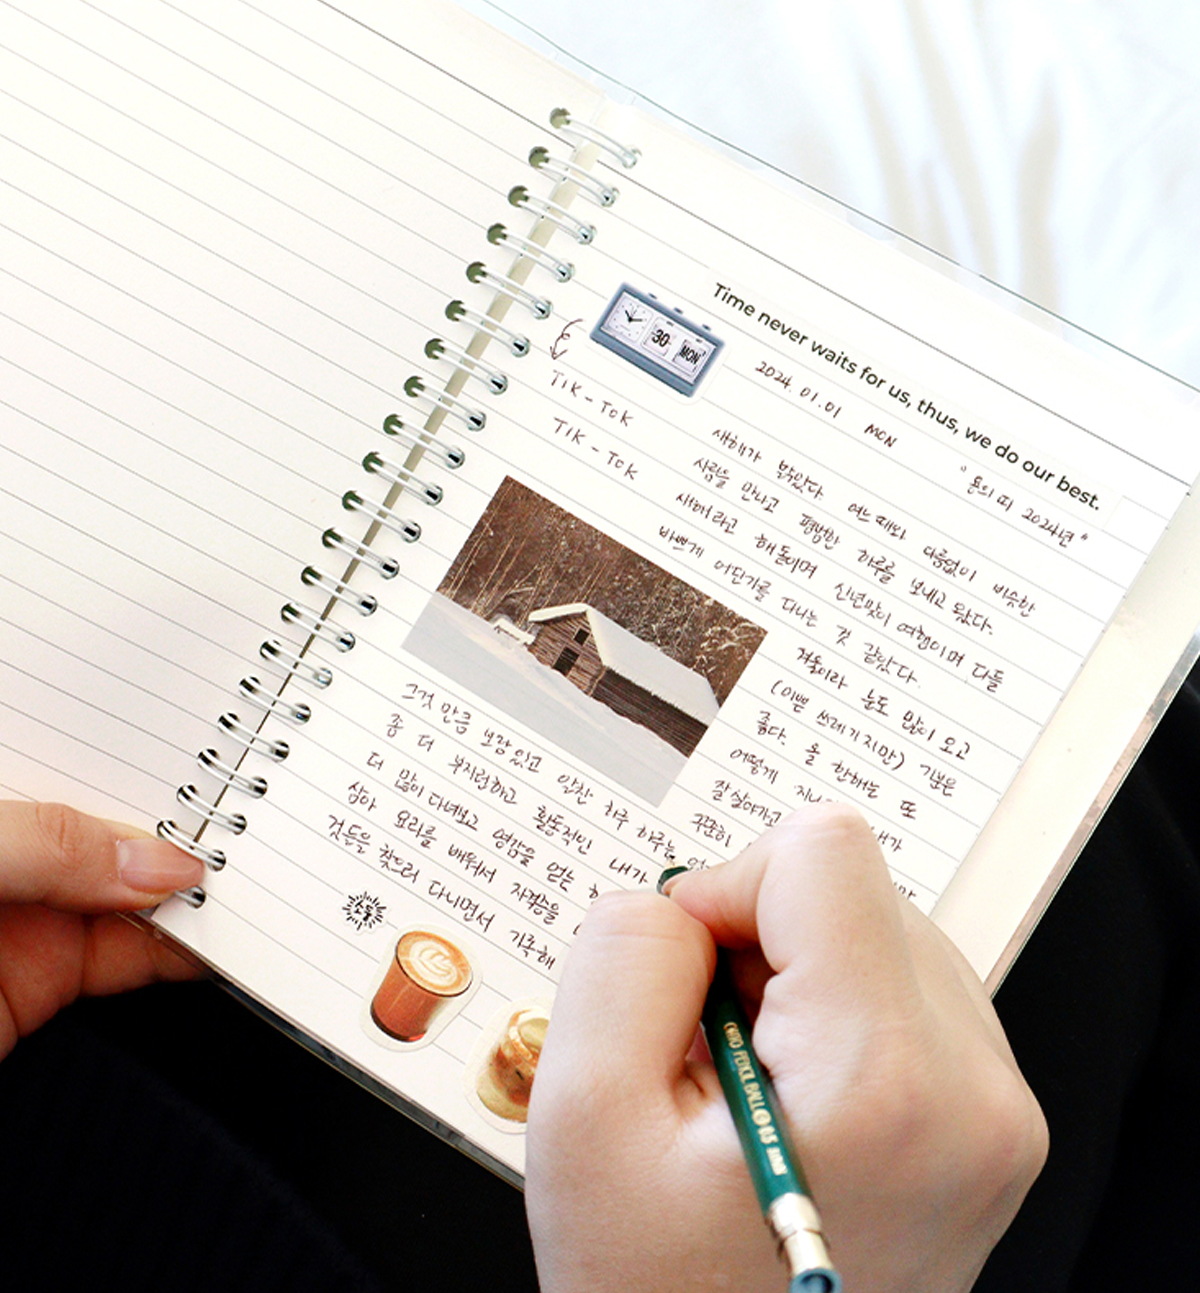 Time never waits for us, thus, we do our best.
30 MON
2024. 01. 01 MON
"용의 띠 2024년"
TIK - TOK
TIK - TOK
새해가 밝았다. 여느 때와 다름없이 비슷한
사람을 만나고 평범한 하루를 보내고 왔다.
새해라고 해돋이며 신년맞이 여행이며 다들
바쁘게 어딘가를 다니는 것 같았다.
겨울이라 눈도 많이 오고
(이쁜 쓰레기지만) 기분은
좋다. 올 한해는 또
어떻게 내가
잘 살아가고
꾸준히
그것 만큼 보람있고 알찬 하루 하루는
좀 더 부지런하고 활동적인 내가
더 많이 다녀보고 영감을 얻는
삼아 요리를 배워서 자격증을
것들을 찾으러 다니면서 기록해
소망
OHTO PENCIL BALL 0.5